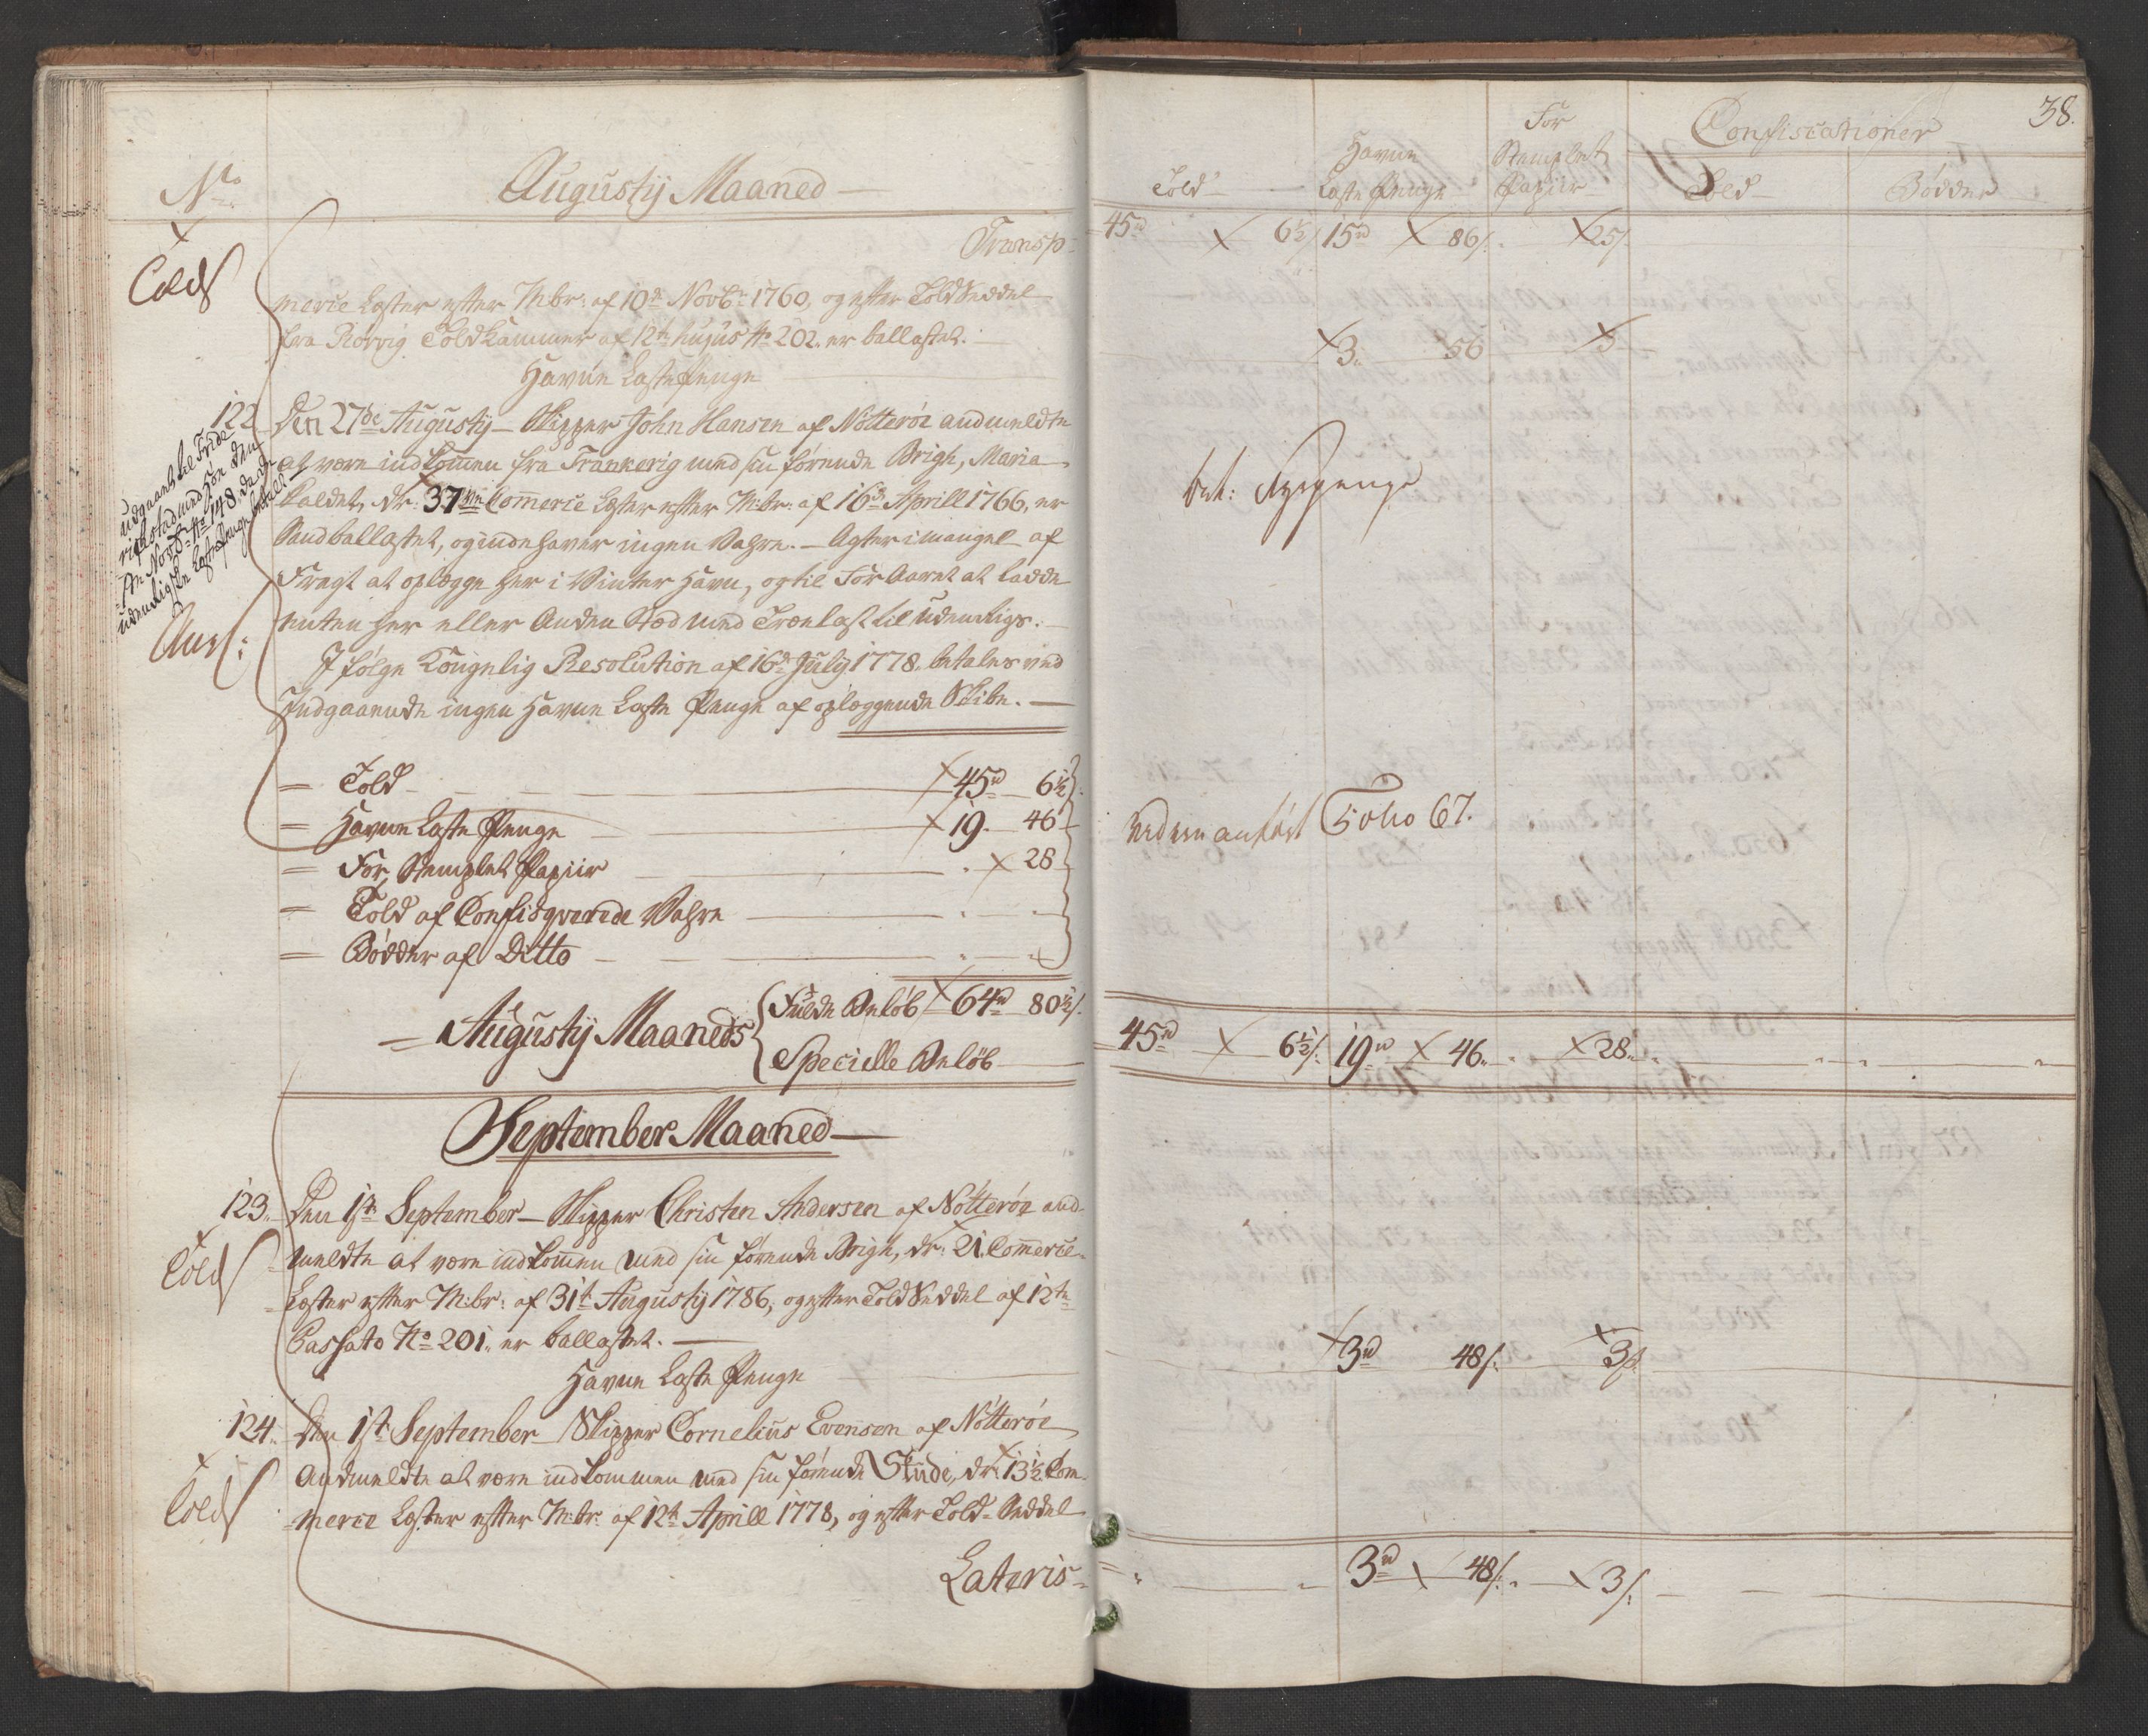 No
Augustÿ Maaned
Transp
Told
merce Læster efter Mbr: af 10de Novbr 1760, og efter Told Seddel
fra Rørvig Toldkammer af 12te hujus No 202. er ballastet.
Havne Læste Penge
122
Den 27de Augustÿ Skipper John Hansen af Nötteröe andmeldte
at være indkommen fra Frankerig med sin förende Brigh, Maria
kaldet, dr: 37 Commerce Læster efter M:br: af 16de Aprill 1766, er
Sandballastet, og indehaver ingen Vahre. Agter i mangel af
Fragt at oplægge her i Winter Havn, og til For Aaret at ladde
enten her eller Anden Stæd med Trælast til Udenrigs.
I fölge Kongelig Resolution af 16de Julÿ 1778. betales ved
Indgaaende ingen Havne Læste Penge af oplæggende Skibe.
udgaaet til Fride
richstad med
No 148. da de
udenrigske Læste Penge betalt
Told 45rd 6½
Havne Læste Penge 19. 46
For Stemplet Papiir 28
Told af Confisqverede Vahre
Bödder af Ditto
Augustÿ Maaneds
Fulde Belöb 64rd 80½ s.
Specielle Belöb
September Maaned
123.
Told
Den 1te September Skipper Christen Andersen af Nötteröe and-
meldte at være indkommen med sin förende Brigh, dr: 21 Commerce
Læster efter M:br: af 31te Augustÿ 1786, og efter Told Seddel af 12te
Passato No 201. er ballastet.
Havne Læste Penge
124.
Told
Den 1te September Skipper Cornelius Evensen af Nötteröe
Andmeldte at være indkommen med sin förende Skude, dr: 13½ Com-
merce Læster efter M:br: af 12te Aprill 1778, og efter Told-Seddel
Lateris
38.
Told
Havne
Læste Penge
For
Stemplet
Papiir
Confiscationer
Told
Bödder
45rd 6½ s 15rd 86 s. 25 s.
3. 56 3
bet: Segpenge
Vidre anfört Folio 67.
45rd 6½ s. 19rd 46. 28.
3rd 48 s. 3 s.
3rd 48 s. 3 s.